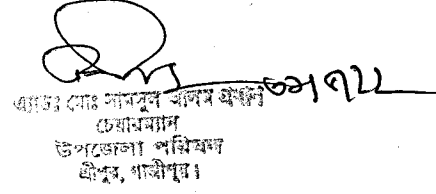 এ্যাডঃ মোঃ সামসুল আলম প্রধান
চেয়ারম্যান
উপজেলা পরিষদ
শ্রীপুর, গাজীপুর।